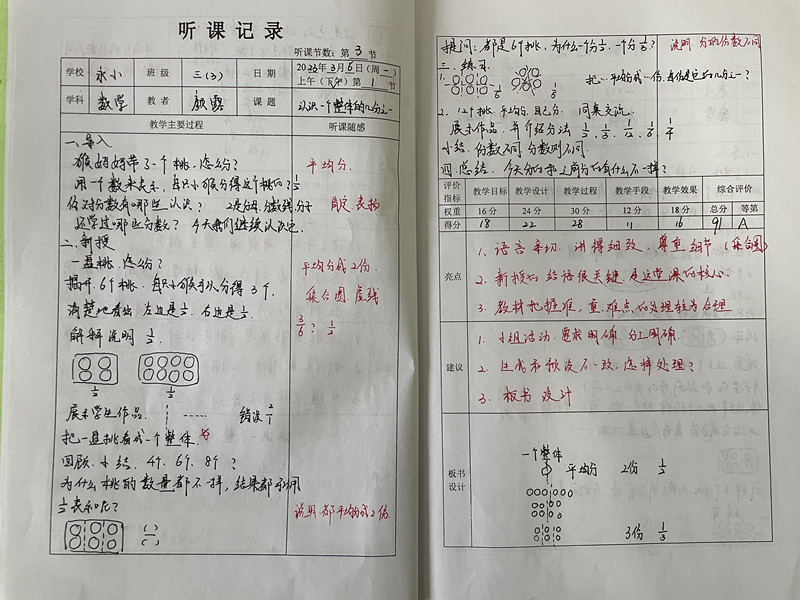 听课记录
听课节数：第 3 节
学校 永小 班级 三(3) 日期 2023年3月6日（周一）
上午（下午）第 1 节
学科 数学 教者 颜露 课题 认识一个整体的几分之一
教学主要过程 听课随感
一、导入
猴妈妈带了一个桃，怎么分？ 平均分.
用一个数来表示，每只小猴分得这个桃的? 1/2
你对分数有哪些认识？ 分母,分数线,分子
还学过哪些分数？ 今天我们继续认识它.
二、新授
一盘桃,怎么分？ 平均分成2份.
揭开,6个桃,每只小猴可以分得3个. 集合圈,虚线
清楚地看出 左边是1/2,右边是1/2. 3/6? 1/2
解释说明 1/2.
1/2 1/2
展示学生作品. 错误 2/1
把一盘桃看成一个整体.
回顾,小结. 4个,6个,8个？
为什么桃的数量都不一样,结果都可用
1/2表示呢？ 说明都平均成2份.
( )/( )
提问：都是6个桃,为什么一个分1/2,一个分1/3？ 说明 分的份数不同
三、练习.
1.
1/6
2. 12个桃,平均分,自己分. 同桌交流.
展示作品,并介绍分法
小结.份数不同,分数则不同.
四.总结.
评价指标 教学目标 教学设计 教学过程 教学手段 教学效果 综合评价
权重 16分 24分 30分 12分 18分 总分 等第
得分 18 22 28 11 16 91 A
亮点
1、语言亲切,讲得细致,尊重细节(集合圈)
2. 新授的结语很关键,是这堂课的核心.
3. 教材把握准,重、难点的处理较为合理
建议
1. 小组活动,要求明确,分工明确.
2. 怎样处理？
3. 板书设计
板书设计
一个整体
平均分 2份 1/2
3份 1/3